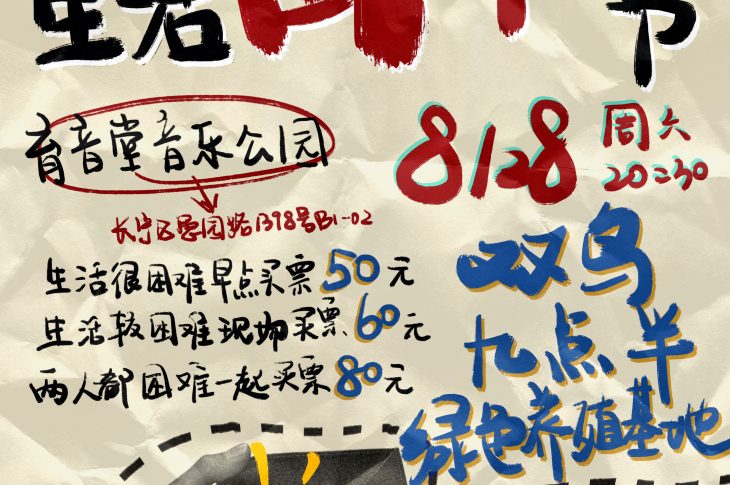 节
育音堂音乐公园
8/28 周六
20:30
长宁区愚园路1398号B1-02
生活很困难早点买票50元
生活较困难现场买票60元
两人都困难一起买票80元
双鸟
九点半
绿色养殖基地